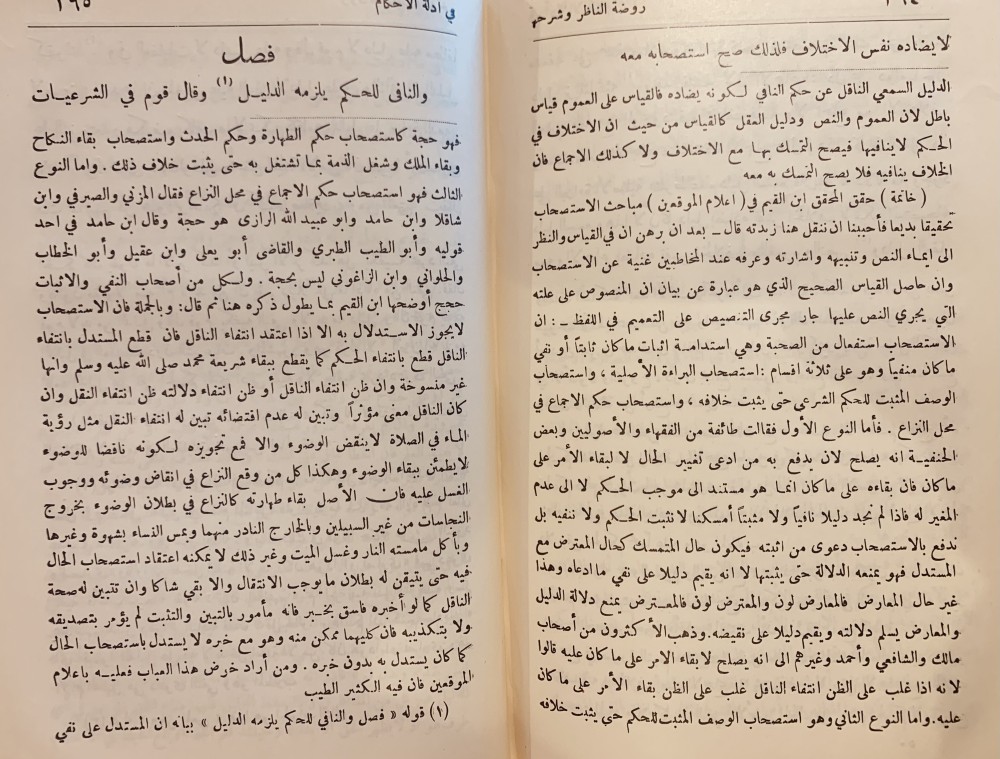 روضة الناظر وشرحها
لا يضاده نفس الاختلاف فلذلك صح استصحابه معه
الدليل السمعي الناقل عن حكم النافي لكونه يضاده فالقياس على العموم قياس
باطل لان العموم والنص ودليل العقل كالقياس من حيث ان الاختلاف في
الحكم لاينافيها فيصح التمسك بها مع الاختلاف ولا كذلك الاجماع فان
الخلاف ينافيه فلا يصح التمسك به معه
( خاتمة ) حقق المحقق ابن القيم في ( اعلام الموقعين ) مباحث الاستصحاب
تحقيقا بديعا فأحببنا ان ننقل هنا زبدته قال ــ بعد ان برهن ان في القياس والنظر
الى ايماء النص وتنبيهه واشارته وعرفه عند المخاطبين غنية عن الاستصحاب
وان حاصل القياس الصحيح الذي هو عبارة عن بيان ان المنصوص على علته
التي يجري النص عليها جار مجرى التنصيص على التعميم في اللفظ ــ : ان
الاستصحاب استفعال من الصحبة وهي استدامة اثبات ما كان ثابتاً أو نفي
ما كان منفياً وهو على ثلاثة اقسام : استصحاب البراءة الأصلية ، واستصحاب
الوصف المثبت للحكم الشرعي حتى يثبت خلافه ، واستصحاب حكم الاجماع في
محل النزاع . فأما النوع الأول فقالت طائفة من الفقهاء والأصوليين وبعض
الحنفية انه يصلح لان يدفع به من ادعى تغيير الحال لا لبقاء الأمر على
ما كان فان بقاءه على ما كان انما هو مستند الى موجب الحكم لا الى عدم
المغير له فاذا لم نجد دليلا نافياً ولا مثبتاً أمسكنا لا نثبت الحكم ولا ننفيه بل
ندفع بالاستصحاب دعوى من اثبته فيكون حال المتمسك كحال المعترض مع
المستدل فهو يمنعه الدلالة حتى يثبتها لا انه يقيم دليلا على نفي ما ادعاه وهذا
غير حال المعارض فالمعارض لون والمعترض لون فالمعترض يمنع دلالة الدليل
والمعارض يسلم دلالته ويقيم دليلا على نقيضه. وذهب الأ كثرون من أصحاب
مالك والشافعي وأحمد وغيرهم الى انه يصلح لابقاء الامر على ما كان عليه قالوا
لانه اذا غلب على الظن انتفاء الناقل غلب على الظن بقاء الأمر على ما كان
عليه. واما النوع الثاني وهو استصحاب الوصف المثبت للحكم حتى يثبت خلافه
في ادلة الاحكام
١٩٥
فصل
والنافى للحكم يلزمه الدليل (١) وقال قوم في الشرعيات
فهو حجة كاستصحاب حكم الطهارة وحكم الحدث واستصحاب بقاء النكاح
وبقاء الملك وشغل الذمة بما تشتغل به حتى يثبت خلاف ذلك . واما النوع
الثالث فهو استصحاب حكم الاجماع في محل النزاع فقال المزني والصيرفي وابن
شاقلا وابن حامد وابو عبيد الله الرازى هو حجة وقال ابن حامد في احد
قوليه وأبو الطيب الطبري والقاضى أبو يعلى وابن عقيل وأبو الخطاب
والحلواني وابن الزاغوني ليس بحجة . ولكل من أصحاب النفي والاثبات
حجج أوضحها ابن القيم بما يطول ذكره هنا ثم قال : وبالجملة فان الاستصحاب
لايجوز الاستدلال به الا اذا اعتقد انتفاء الناقل فان قطع المستدل بانتفاء
الناقل قطع بانتفاء الحكم كما يقطع ببقاء شريعة محمد صلى الله عليه وسلم وانها
غير منسوخة وان ظن انتفاء الناقل أو ظن انتفاء دلالته ظن انتفاء النقل وان
كان الناقل معنى مؤثراً وتبين له عدم اقتضائه تبين له انتفاء النقل مثل رؤية
الماء في الصلاة لاينقض الوضوء والا فمع تجويزه لكونه ناقضا للوضوء
لايطمئن ببقاء الوضوء وهكذا كل من وقع النزاع في انقاض وضوئه ووجوب
الغسل عليه فان الأصل بقاء طهارته كالنزاع في بطلان الوضوء بخروج
النجاسات من غير السبيلين وبالخارج النادر منهما وبمس النساء بشهوة وغيرها
وبأكل مامسته النار وغسل الميت وغير ذلك لا يمكنه اعتقاد استصحاب الحال
فيه حتى يتيقن له بطلان ما يوجب الانتقال والا بقي شاكا وان تتبين له صحة
الناقل كما لو أخبره فاسق بخبر فانه مأمور بالتبين والتثبت لم يؤمر بتصديقه
ولا بتكذيبه فان كليهما ممكن منه وهو مع خبره لا يستدل باستصحاب الحال
كما كان يستدل به بدون خبره . ومن أراد خوض هذا العباب فعليه باعلام
الموقعين فان فيه الكثير الطيب
(١) قوله « فصل والنافي للحكم يلزمه الدليل » بيانه ان المستدل على نفي